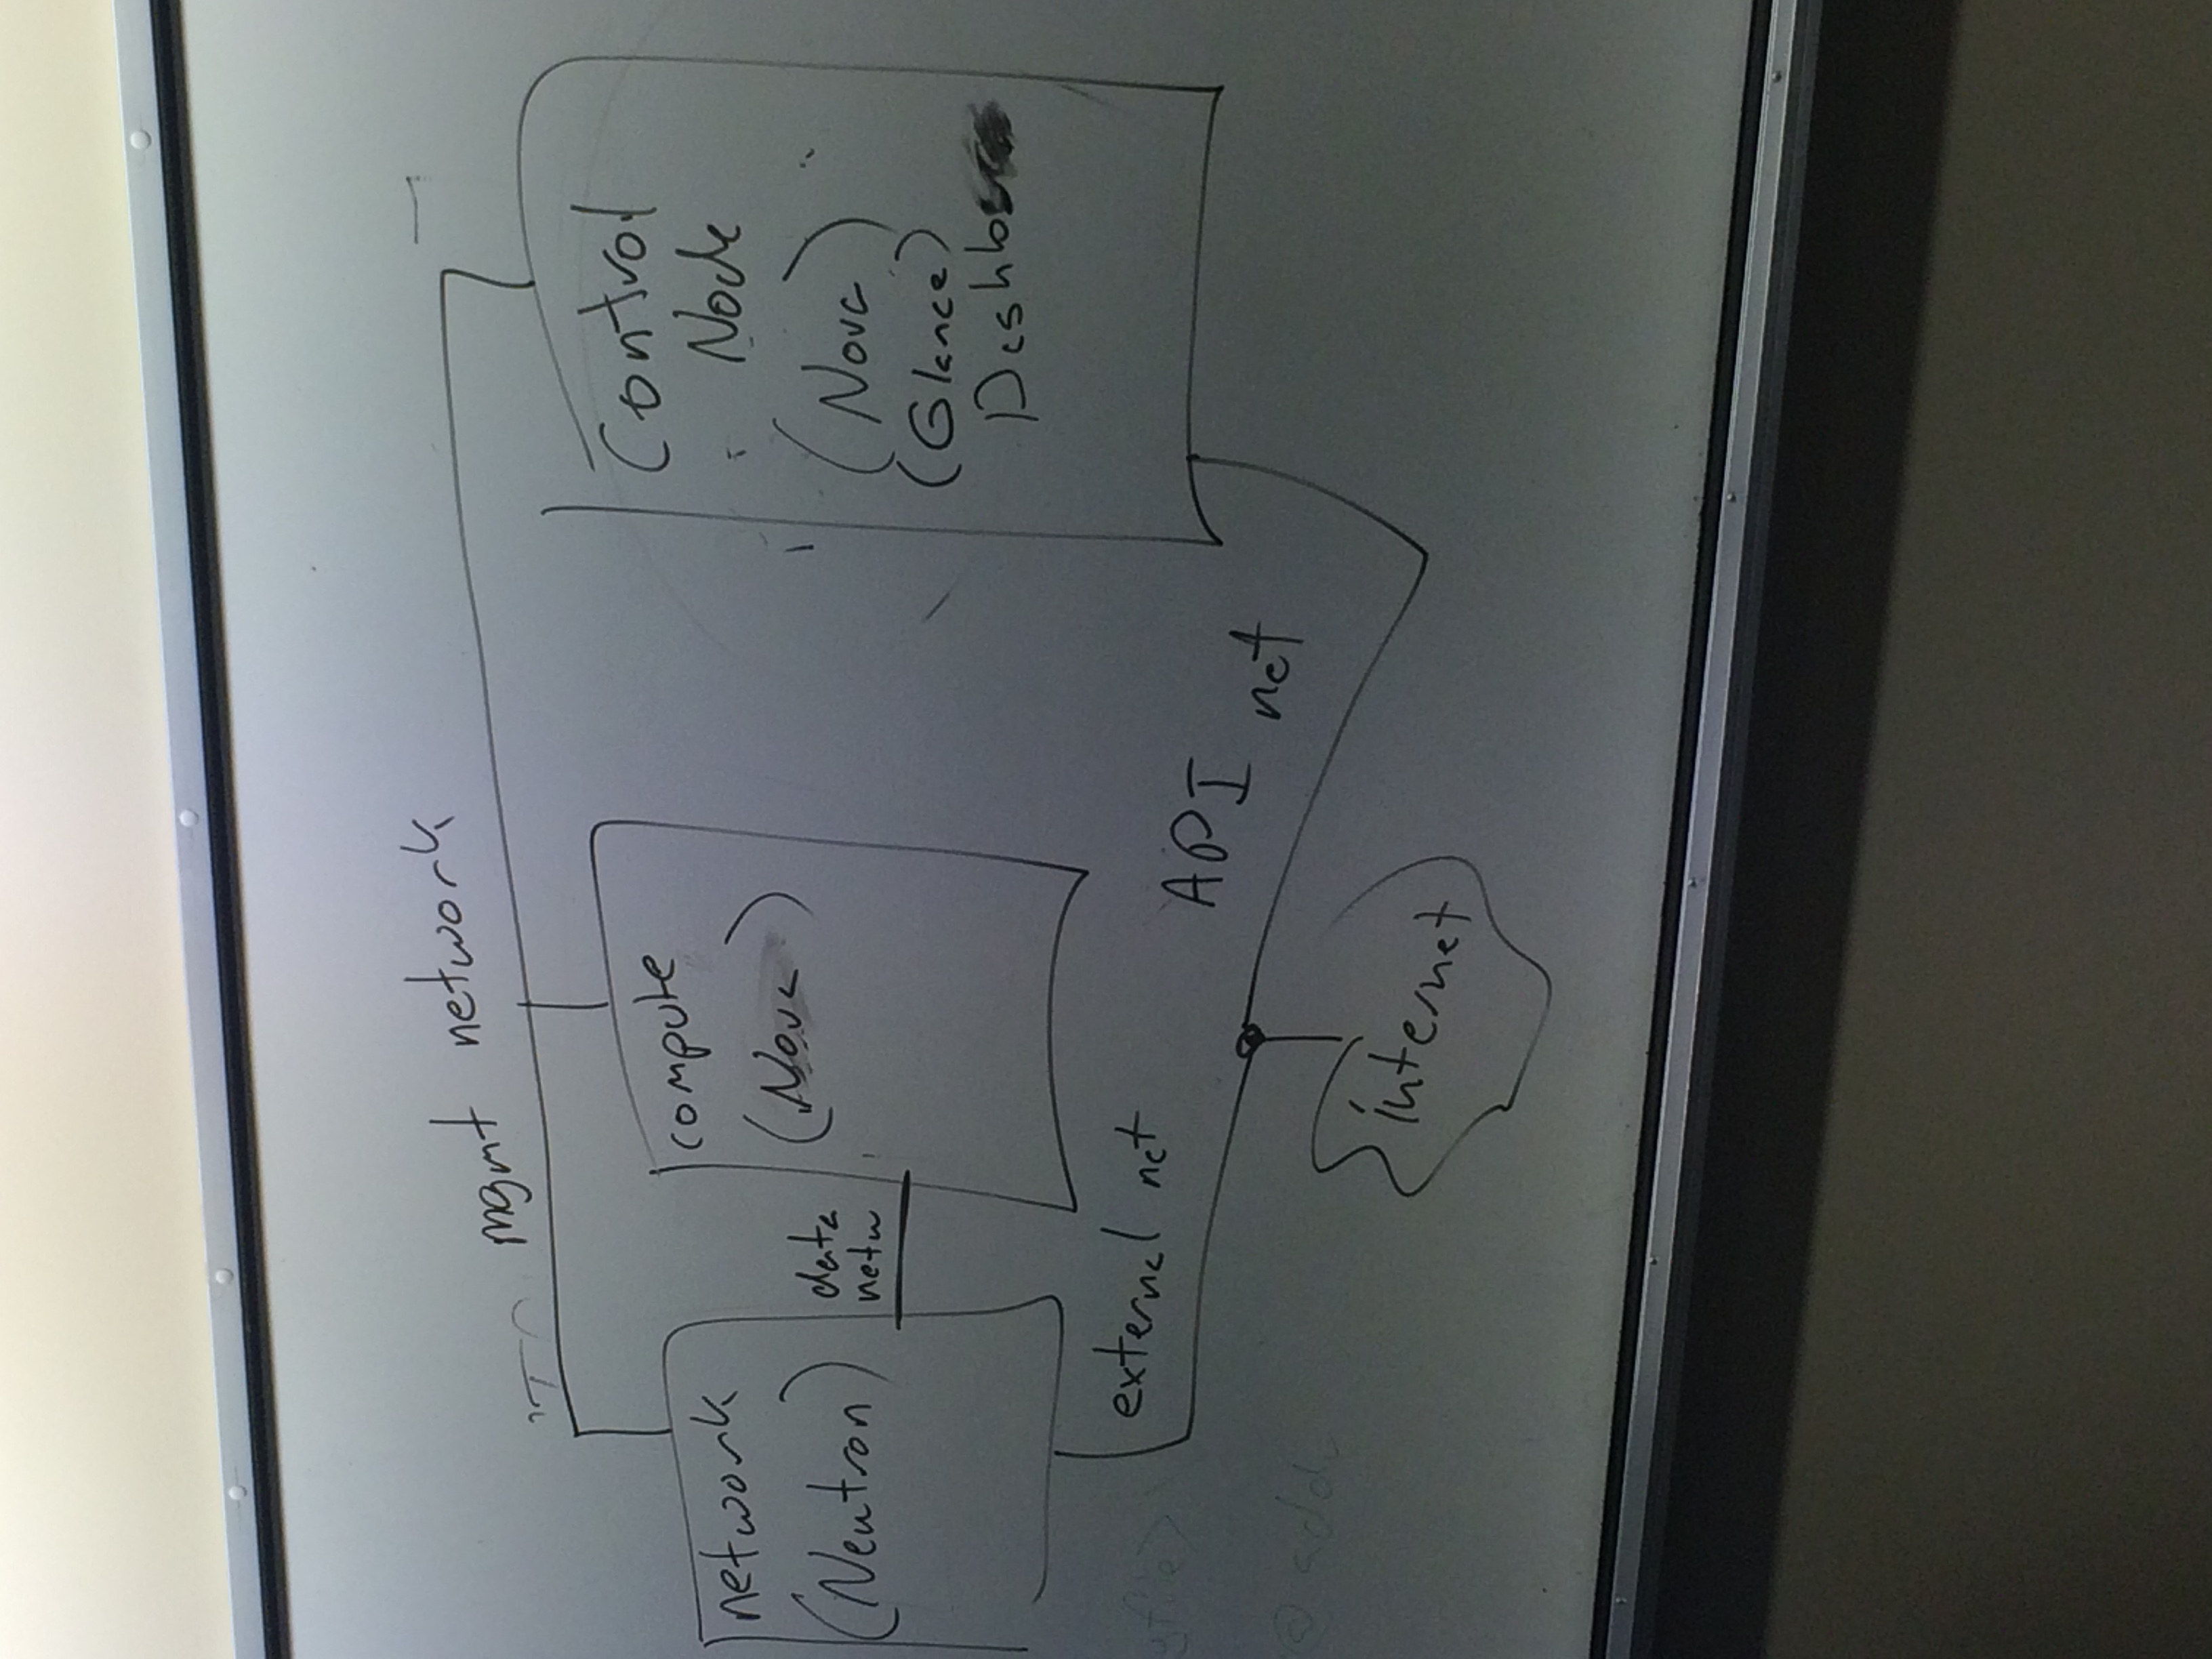 mgmt network
network
(Neutron)
data
netw
compute
(Nova)
Control
Node
(Nova)
(Glance)
external net
API
net
internet